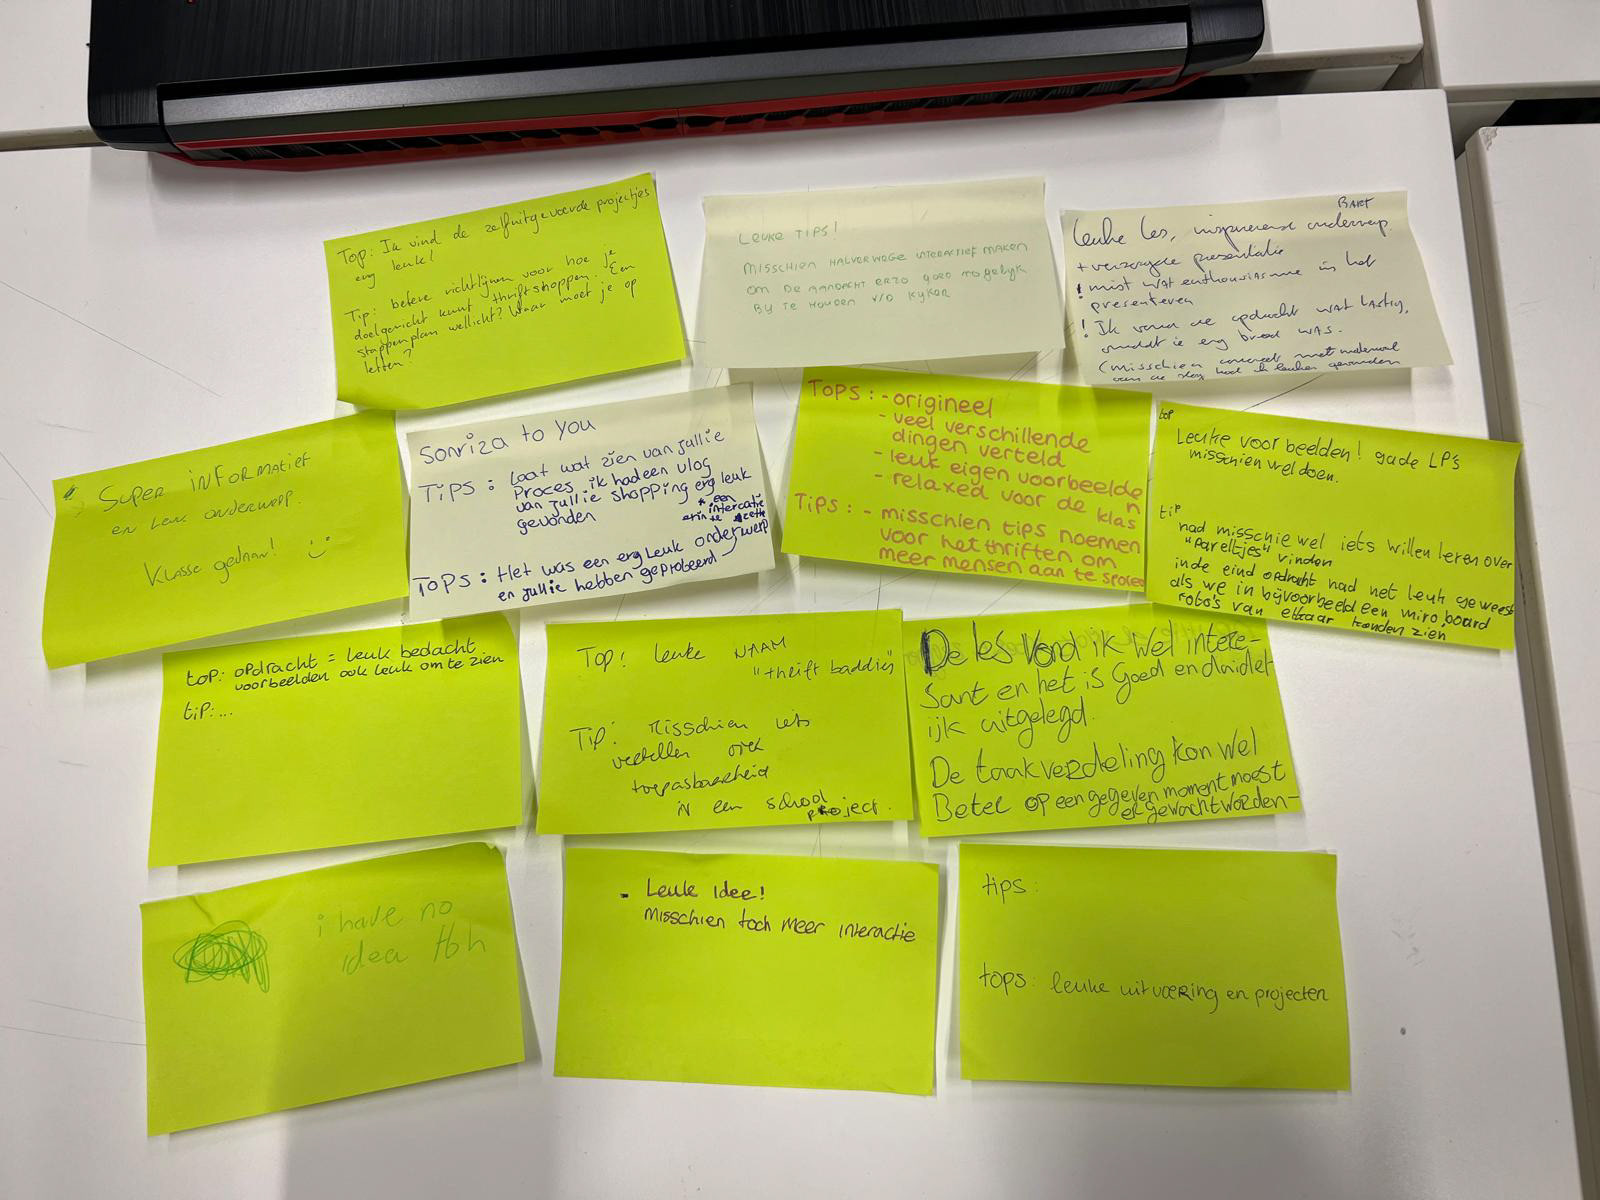 Top: Ik vind de zelfuitgevoerde projectjes
erg leuk!
Tip: betere richtlijnen voor hoe je
doelgericht kunt thriftshoppen. Een
stappenplan wellicht? Waar moet je op
letten?
LEUKE TIPS!
MISSCHIEN HALVERWEGE INTERACTIEF MAKEN
OM DE AANDACHT ER ZO GOED MOGELIJK
BIJ TE HOUDEN V/D KIJKER
BART
Leuke les, inspirerend onderwerp.
+ verzorgde presentatie
! mist wat enthousiasme in het
presenteren
! Ik vond de opdracht wat lastig,
omdat ie erg breed was.
(misschien concreet met materiaal
aan de slag had ik leuker gevonden
SUPER INFORMATIEF
en leuk onderwerp.
Klasse gedaan! :)
Sonriza to you
TIPS: Laat wat zien van jullie
Proces ik had een vlog
van jullie shopping erg leuk
gevonden
* een
interactie
erin te zetten
TOPS: Het was een erg leuk onderwerp
en jullie hebben geprobeerd
TOPS: - origineel
- veel verschillende
dingen verteld
- leuk eigen voorbeelde
n
- relaxed voor de klas
TIPS: - misschien tips noemen
voor het thriften om
meer mensen aan te spore
top
Leuke voorbeelden! gade LP's
misschien wel doen.
tip
had misschie wel iets willen leren over
"Pareltjes" vinden
in de eind opdracht had het leuk geweest
als we in bijvoorbeeld een miro board
foto's van elkaar konden zien
top: opdracht = leuk bedacht
voorbeelden ook leuk om te zien
tip:...
Top! leuke NAAM
"thrift baddies"
Tip: Misschien iets
vertellen over
toepasbaarheid
in een school
project.
De les vond ik wel intere-
sant en het is goed en duidel
ijk uitgelegd.
De taakverdeling kon wel
Beter op een gegeven moment moest
er gewacht worden-
i have no
idea tbh
- Leuk idee!
Misschien toch meer interactie
tips:
tops: leuke uitvoering en projecten